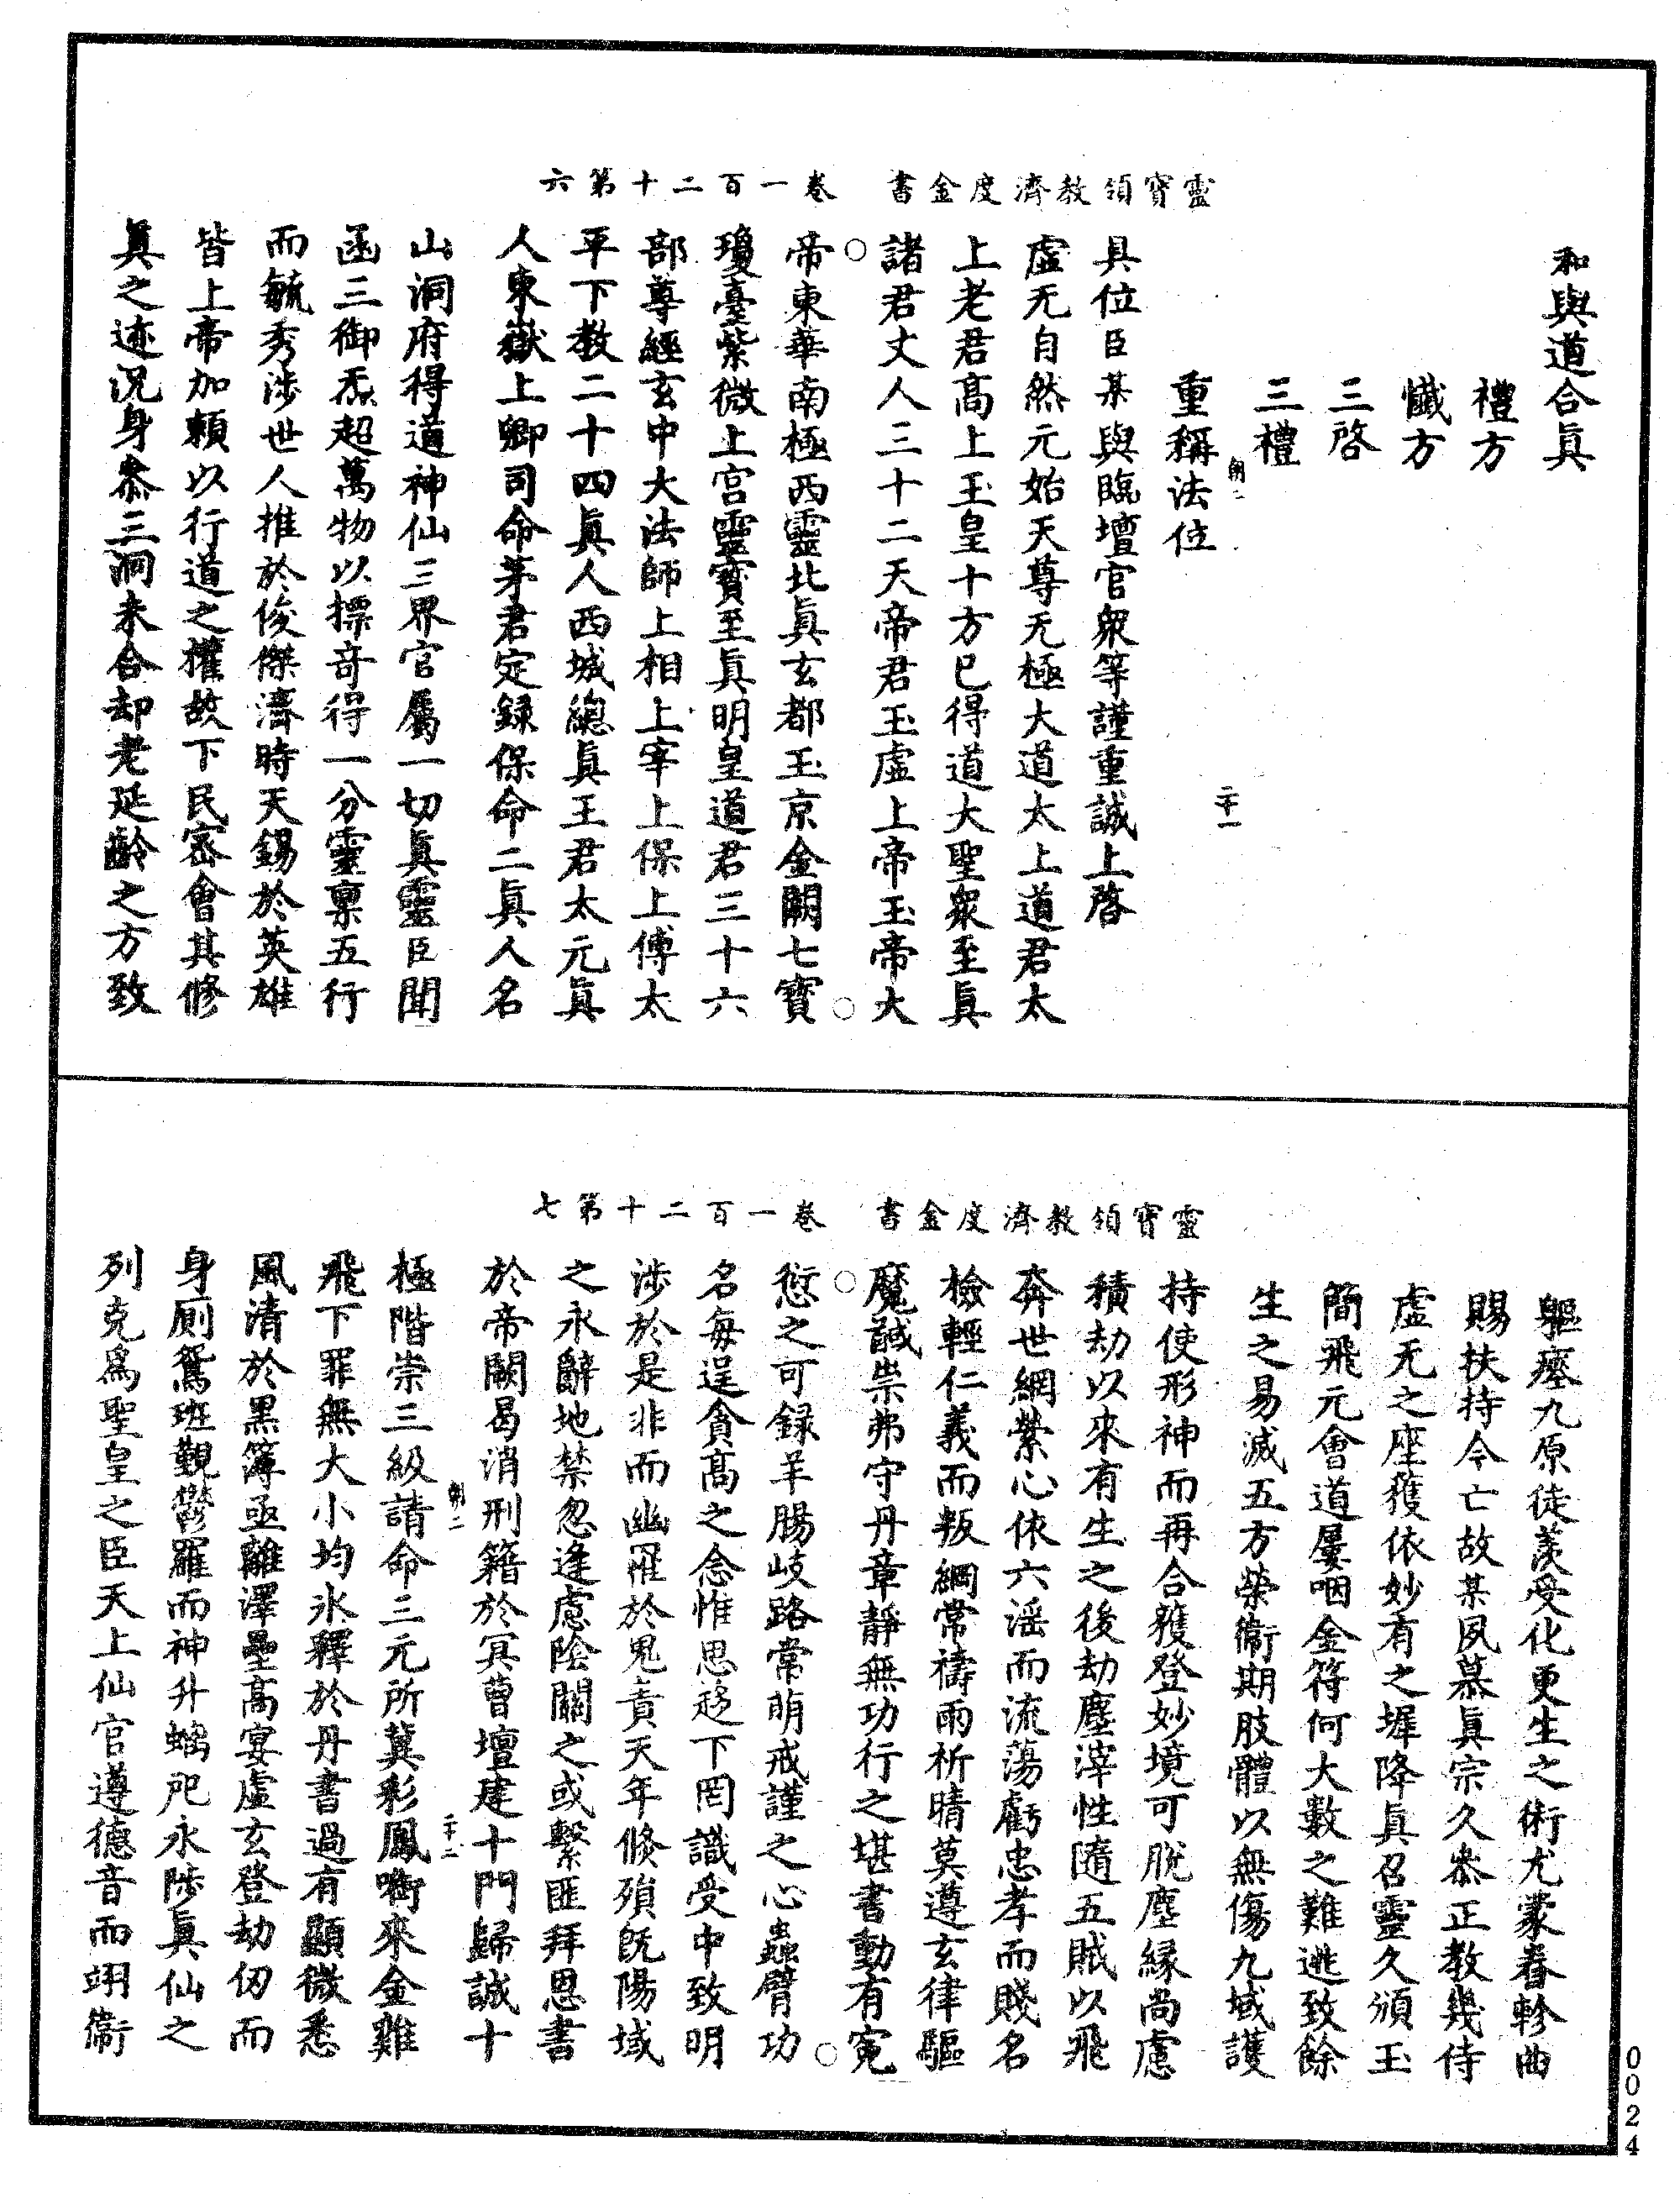 靈寶領教濟度金書　卷一百二十第六
和與道合眞
禮方
懴方
三啓
三禮
朝二
二十一
重稱法位
具位臣某與臨壇官衆等謹重誠上啓
虛无自然元始天尊无極大道太上道君太
上老君髙上玉皇十方已得道大聖衆至眞
諸君丈人三十二天帝君玉虛上帝玉帝大
帝東華南極西靈北眞玄都玉京金闕七寶
瓊臺紫微上宮靈寶至眞明皇道君三十六
部尊經玄中大法師上相上宰上保上傅太
平下教二十四眞人西城緫眞王君太元眞
人東嶽上卿司命茅君定録保命二眞人名
山洞府得道神仙三界官屬一切眞靈臣聞
函三御炁超萬物以摽竒得一分靈禀五行
而毓秀涉世人推於俊傑濟時天錫於英雄
皆上帝加賴以行道之權故下民宻會其修
眞之迹況身叅三洞未合却老延齡之方致
靈寶領教濟度金書　卷一百二十第七
軀瘞九原徒羨受化更生之術尤蒙眷軫曲
賜扶持今亡故某夙慕眞宗久叅正教幾侍
虛无之座獲依妙有之墀降眞召靈久頒玉
簡飛元會道屢咽金符何大數之難逃致餘
生之易滅五方榮衞期肢體以無傷九域護
持使形神而再合獲登妙境可脫塵縁尚慮
積劫以來有生之後劫塵滓性隨五賊以飛
奔世網縈心依六滛而流蕩虧忠孝而賤名
檢輕仁義而叛綱常禱雨祈晴莫遵玄律驅
魔馘祟弗守丹章靜無功行之堪書動有寃
愆之可録羊腸岐路常萌戒謹之心蟲臂功
名每逞貪髙之念惟思趍下罔識受中致明
涉於是非而幽罹於鬼責天年倐殞旣陽域
之永辭地禁忽逢慮陰關之或繫匪拜恩書
於帝闕曷消刑籍於冥曹壇建十門歸誠十
朝二
二十二
極階崇三級請命三元所冀彩鳳啣來金雞
飛下罪無大小均氷釋於丹書過有顯微悉
風清於黒簿亟離澤壘髙宴虛玄登劫仞而
身厠鴛班觀鬱羅而神升螭陛永陟眞仙之
列克爲聖皇之臣天上仙官遵德音而翊衞
0024